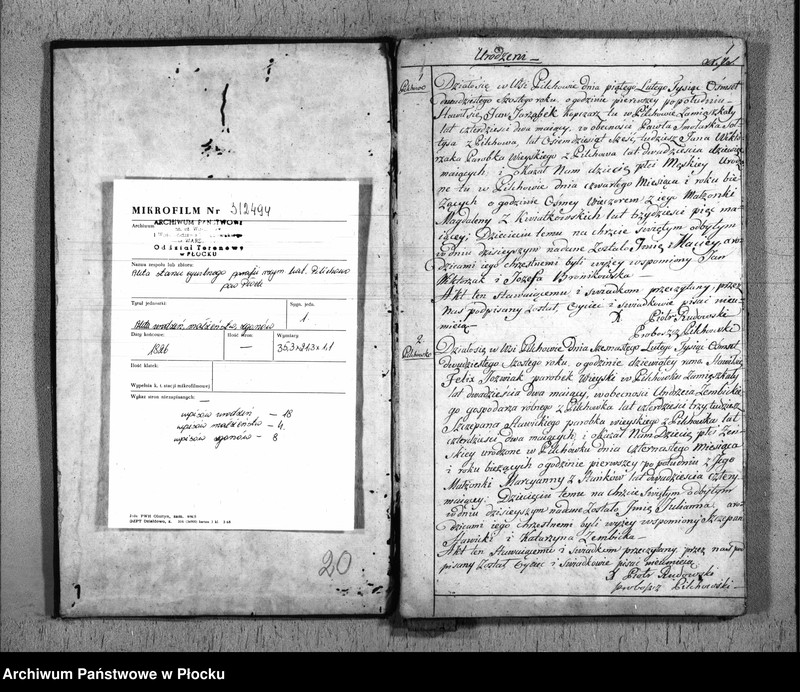 MIKROFILM Nr 312494
Archiwum
ARCHIWUM PAŃSTWOWE
Oddział Terenowy
w PŁOCKU
Nazwa zespołu lub zbioru:
Akta stanu cywilnego parafii rzym. kat. Pilichowo
pow. Płock
Tytuł jednostki:
Akta urodzeń, małżeństw, zgonów
Sygn. jedn.
1
Daty końcowe:
1826
Ilość stron:
—
Wymiary
35,3 x 21,3 x 1,1
Ilość klatek:
Wypełnia k. t. stacji mikrofilmowej
Wykaz stron niezapisanych: —
wpisów urodzeń - 18
wpisów małżeństw - 4.
wpisów zgonów - 8
20
Urodzeni
1
Działo się w Wsi Pilchowie dnia piątego Lutego Tysiąc Ośmset
dwudziestego Szostego roku, o godzinie pierwszey po południu
Stawił się Jan Jarząbek Kopiarz tu w Pilchowie Zamieszkały
lat czterdzieści dwa maiący, w obecności Pawła Smolarka Soł-
tysa z Pilchowa, lat Ośmdziesiąt Sześć tudzież Jana Wikto-
rzaka Parobka Wieyskiego z Pilchowa lat dwadzieścia dziewięć
maiących, i okazał Nam dziecię płci Męskiey Urodzo-
ne tu w Pilchowie dnia czwartego Miesiąca i roku bie-
żących o godzinie Osmey Wieczorem z iego Małżonki
Magdaleny z Kwiatkowskich lat trzydzieści pięć ma-
iącey; Dziecięciu temu na chrzcie świętym odbytym
w dniu dzisieyszym nadane zostało Imię Maciey, a ro-
dzicami iego chrzestnemi byli wyżey wspomniony Jan
Wiktorzak i Józefa Bronikowska —
Akt ten Stawaiącemu i świadkom przeczytany przez
Nas podpisany został, Oyciec i świadkowie pisać nieu-
mieią —
X. Piotr Rudowski
Proboszcz Pilchowski
2.
Pilichowko
Działo się w Wsi Pilchowie Dnia Szesnastego Lutego Tysiąc Ośmset
dwudziestego Szostego roku, o godzinie dziewiątey rano, Stawił się
Felix Jozwiak parobek Wieyski w Pilchowku Zamieszkały
lat dwadzieścia dwa maiący, w obecności Andrzeia Zembickie-
go gospodarza rolnego z Pilchowka lat czterdzieści trzy tudzież
Szczepana Sławickiego parobka wieyskiego z Pilchowka lat
czterdzieści dwa maiących; i okazał Nam Dziecię płci Żeń-
skiey urodzone w Pilchowku dnia czternastego Miesiąca
i roku bieżących o godzinie pierwszey po południu z Jego
Małżonki Maryanny z Stańków lat dwadzieścia cztery
maiącey; Dziecięciu temu na chrzcie świętym odbytym
w dniu dzisieyszym nadane zostało Imię Julianna, a ro-
dzicami iego chrzestnemi byli wyżey wspomniony Szczepan
Sławicki i Katarzyna Zembicka —
Akt ten Stawaiącemu i świadkom przeczytany, przez nas pod-
pisany został Oyciec i świadkowie pisać nieumieią
X Piotr Rudowski
proboszcz Pilchowski —
Archiwum Państwowe w Płocku